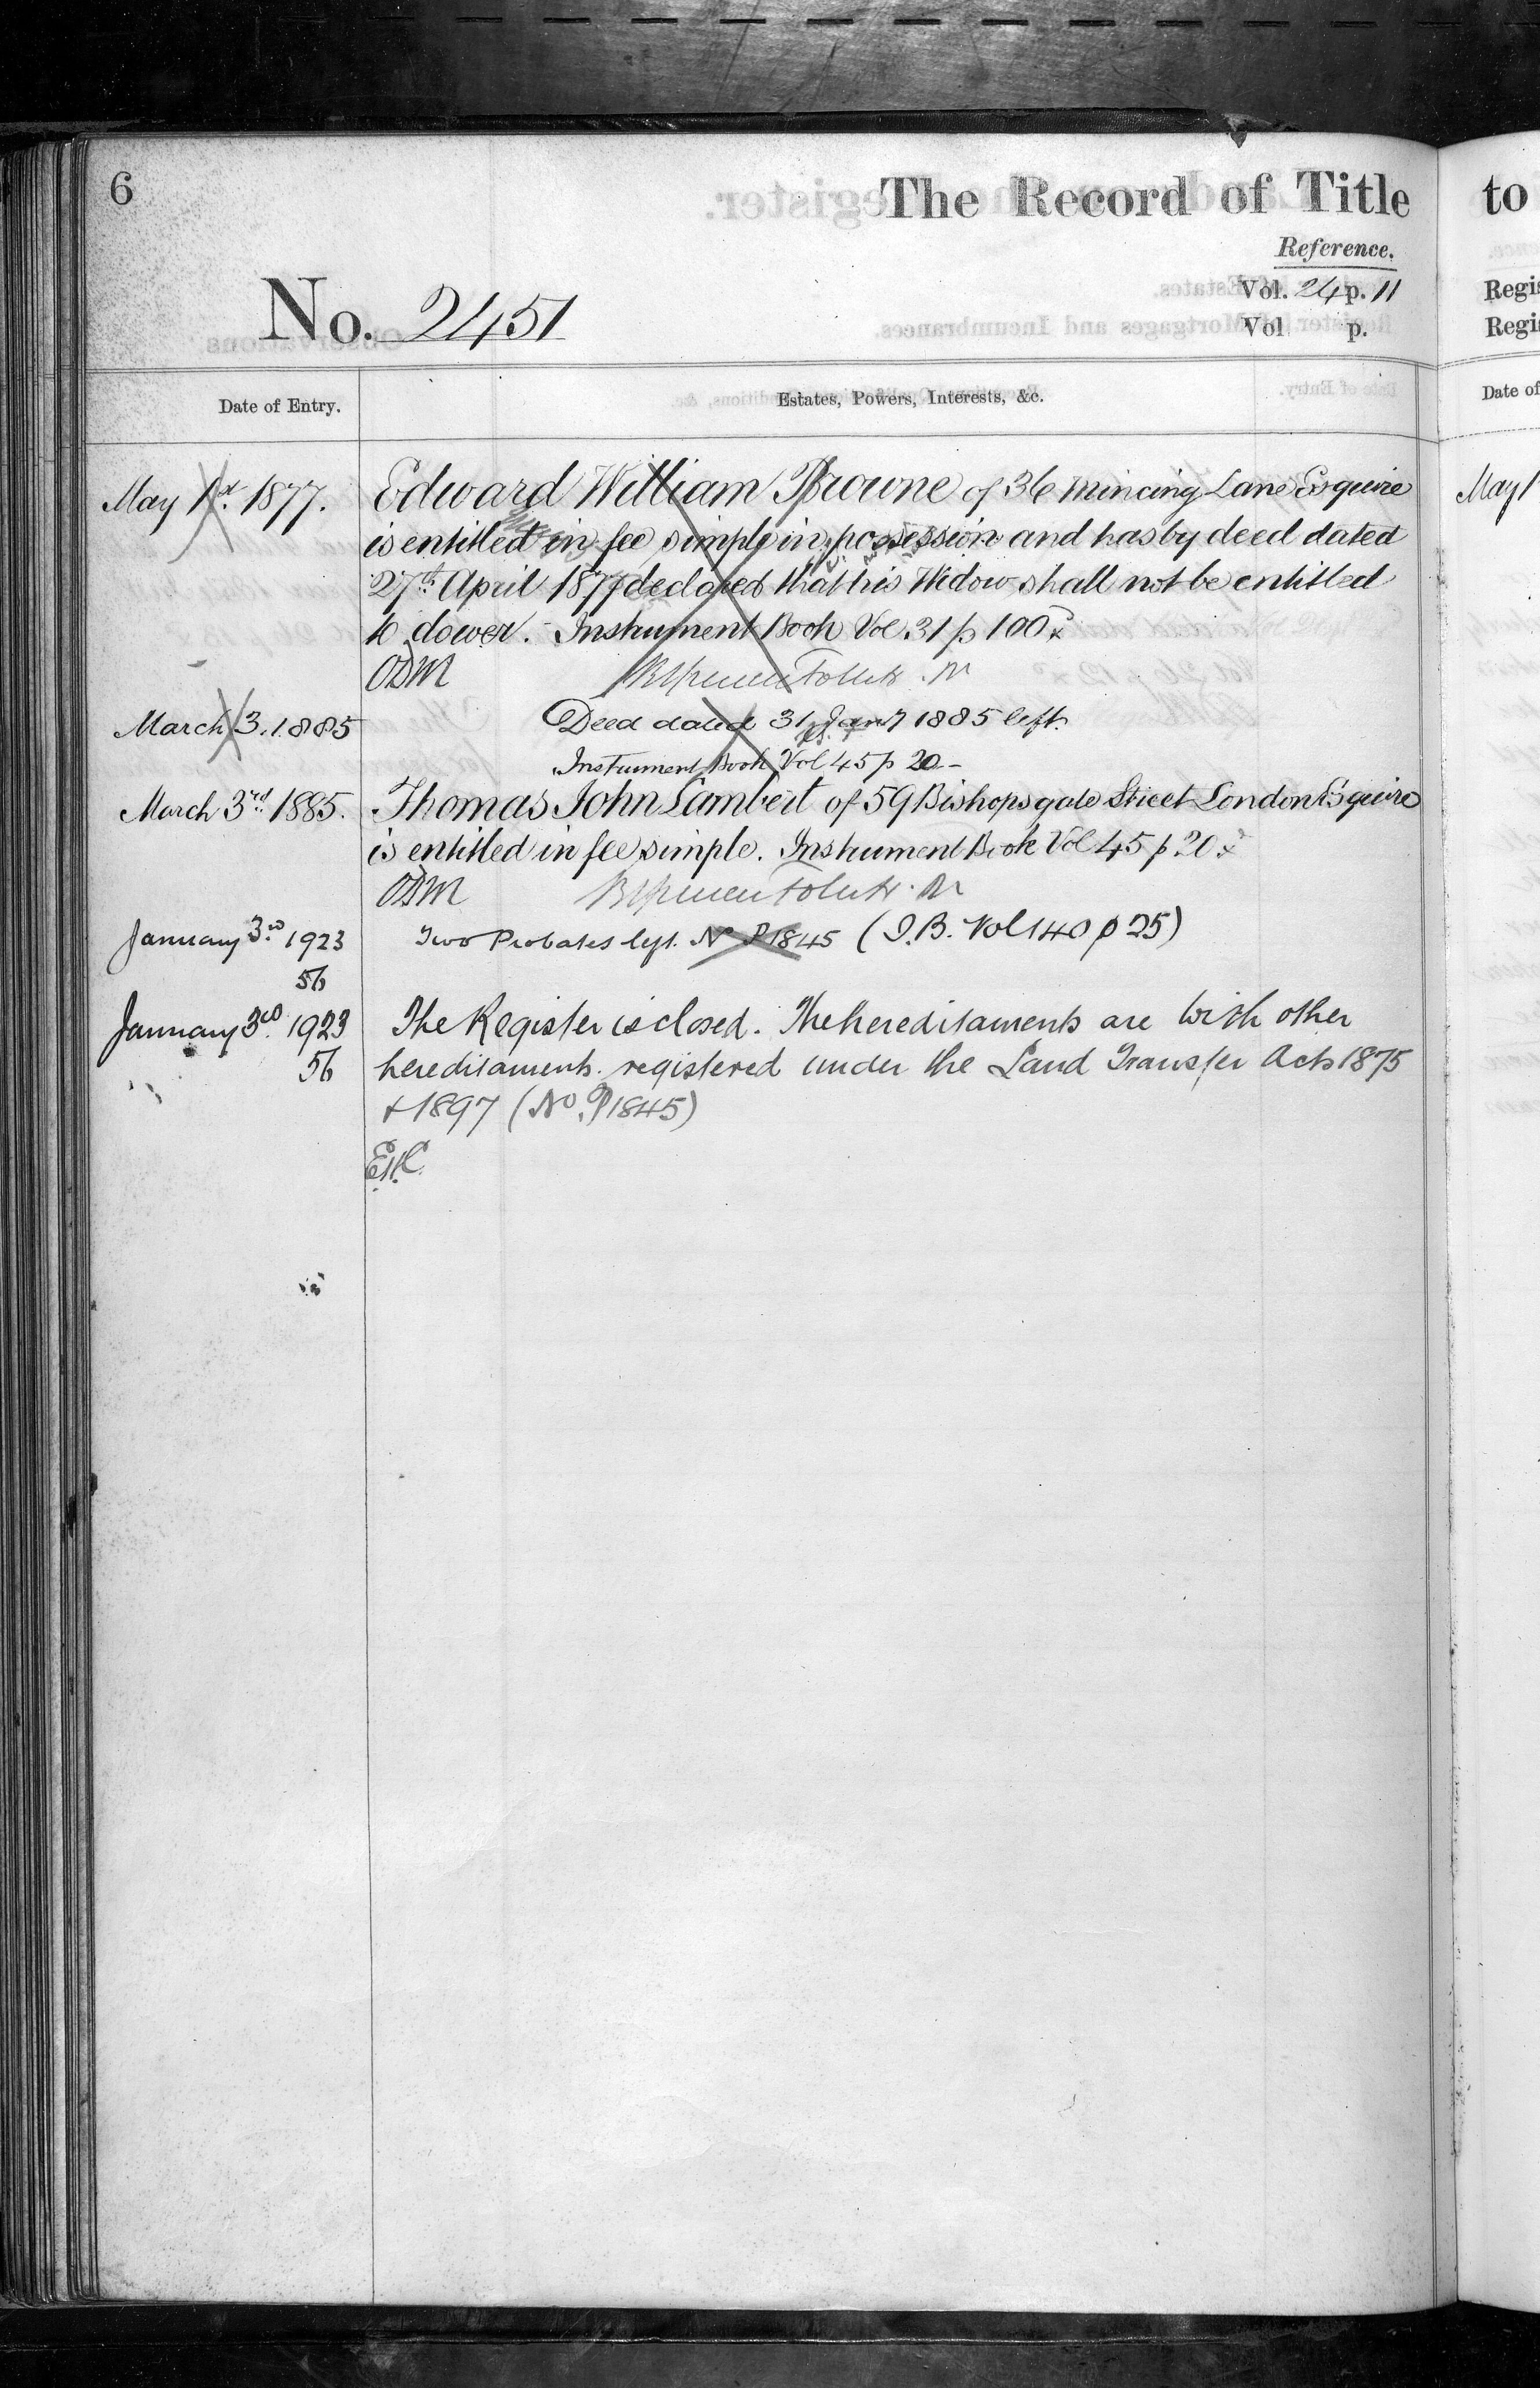 6
The Record of Title
Reference.
Vol. 24 p. 11
No. 2451
Vol p.
Date of Entry.
Estates, Powers, Interests, &c.
May 1st. 1877.
Edward William Browne of 36 Mincing Lane Esquire
is entitled in fee simple in possession and has by deed dated
27th April 1877 declared that his Widow shall not be entitled
to dower. Instrument Book Vol. 31 p 100
ODM
March 3. 1885
Deed dated 31 Jany 1885 left.
Instrument Book Vol 45 p 20 -
March 3rd 1885.
Thomas John Lambert of 59 Bishopsgate Street London Esquire
is entitled in fee simple. Instrument Book Vol 45 p 20
ODM
January 3rd 1923
56
Two Probates left. No P1845 (I.B. Vol 140 p 25)
January 3rd 1923
56
The Register is closed. The hereditaments are with other
hereditaments registered under the Land Transfer Acts 1875
+ 1897 (No. P1845)
to
Regis
Regi
Date of
May 1